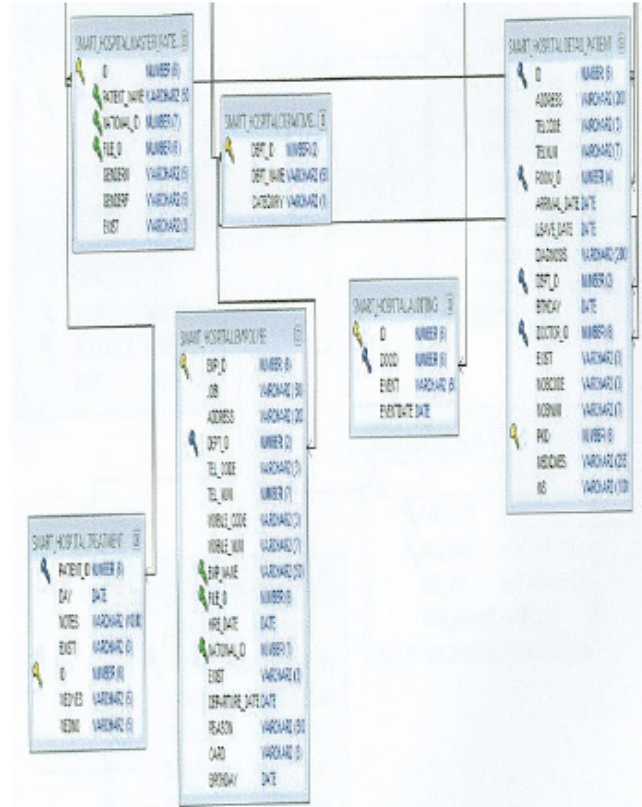 SMART_HOSPITAL.MASTER_PATE...
ID NUMBER (6)
PATIENT_NAME VARCHAR2 (50
NATIONAL_ID NUMBER(7)
FILE_ID NUMBER(6)
GENDERM VARCHAR2 (5)
GENDERF VARCHAR2 (5)
EXIST VARCHAR2 (3)
SMART_HOSPITAL.DEPARTME...
DEPT_ID NUMBER(2)
DEPT_NAME VARCHAR2 (50
CATEGORY VARCHAR2 (1)
SMART_HOSPITAL.DETAIL_PATIENT
ID NUMBER (6)
ADDRESS VARCHAR2 (200
TELCODE VARCHAR2 (3)
TELNUM VARCHAR2 (7)
ROOM_ID NUMBER (4)
ARRIVAL_DATE DATE
LEAVE_DATE DATE
DIAGNOSIS VARCHAR2 (200
DEPT_ID NUMBER (2)
BITHDAY DATE
DOCTOR_ID NUMBER(6)
EXIST VARCHAR2 (3)
MOBCODE VARCHAR2 (3)
MOBNUM VARCHAR2 (7)
PKID NUMBER (6)
MEDICINES VARCHAR2 (255
INS VARCHAR2 (100
SMART_HOSPITAL.AUDITING
ID NUMBER (6)
DOCID NUMBER (6)
EVENT VARCHAR2
EVENTDATE DATE
SMART_HOSPITAL.EMPOLYEE
EMP_ID NUMBER (6)
JOB VARCHAR2
ADDRESS VARCHAR2 (200
DEPT_ID NUMBER (2)
TEL_CODE VARCHAR2 (3)
TEL_NUM NUMBER (7)
MOBILE_CODE VARCHAR2 (3)
MOBILE_NUM VARCHAR2 (7)
EMP_NAME VARCHAR2 (50)
FILE_ID NUMBER (6)
HIRE_DATE DATE
NATIONAL_ID NUMBER (7)
EXIST VARCHAR2 (3)
DEPARTURE_DATE DATE
REASON VARCHAR2
CARD VARCHAR2
BIRTHDAY DATE
SMART_HOSPITAL.TREATMENT
PATIENT_ID NUMBER (6)
DAY DATE
NOTES VARCHAR2 (1000)
EXIST VARCHAR2 (3)
ID NUMBER (6)
MEDYES VARCHAR2 (5)
MEDNO VARCHAR2 (5)